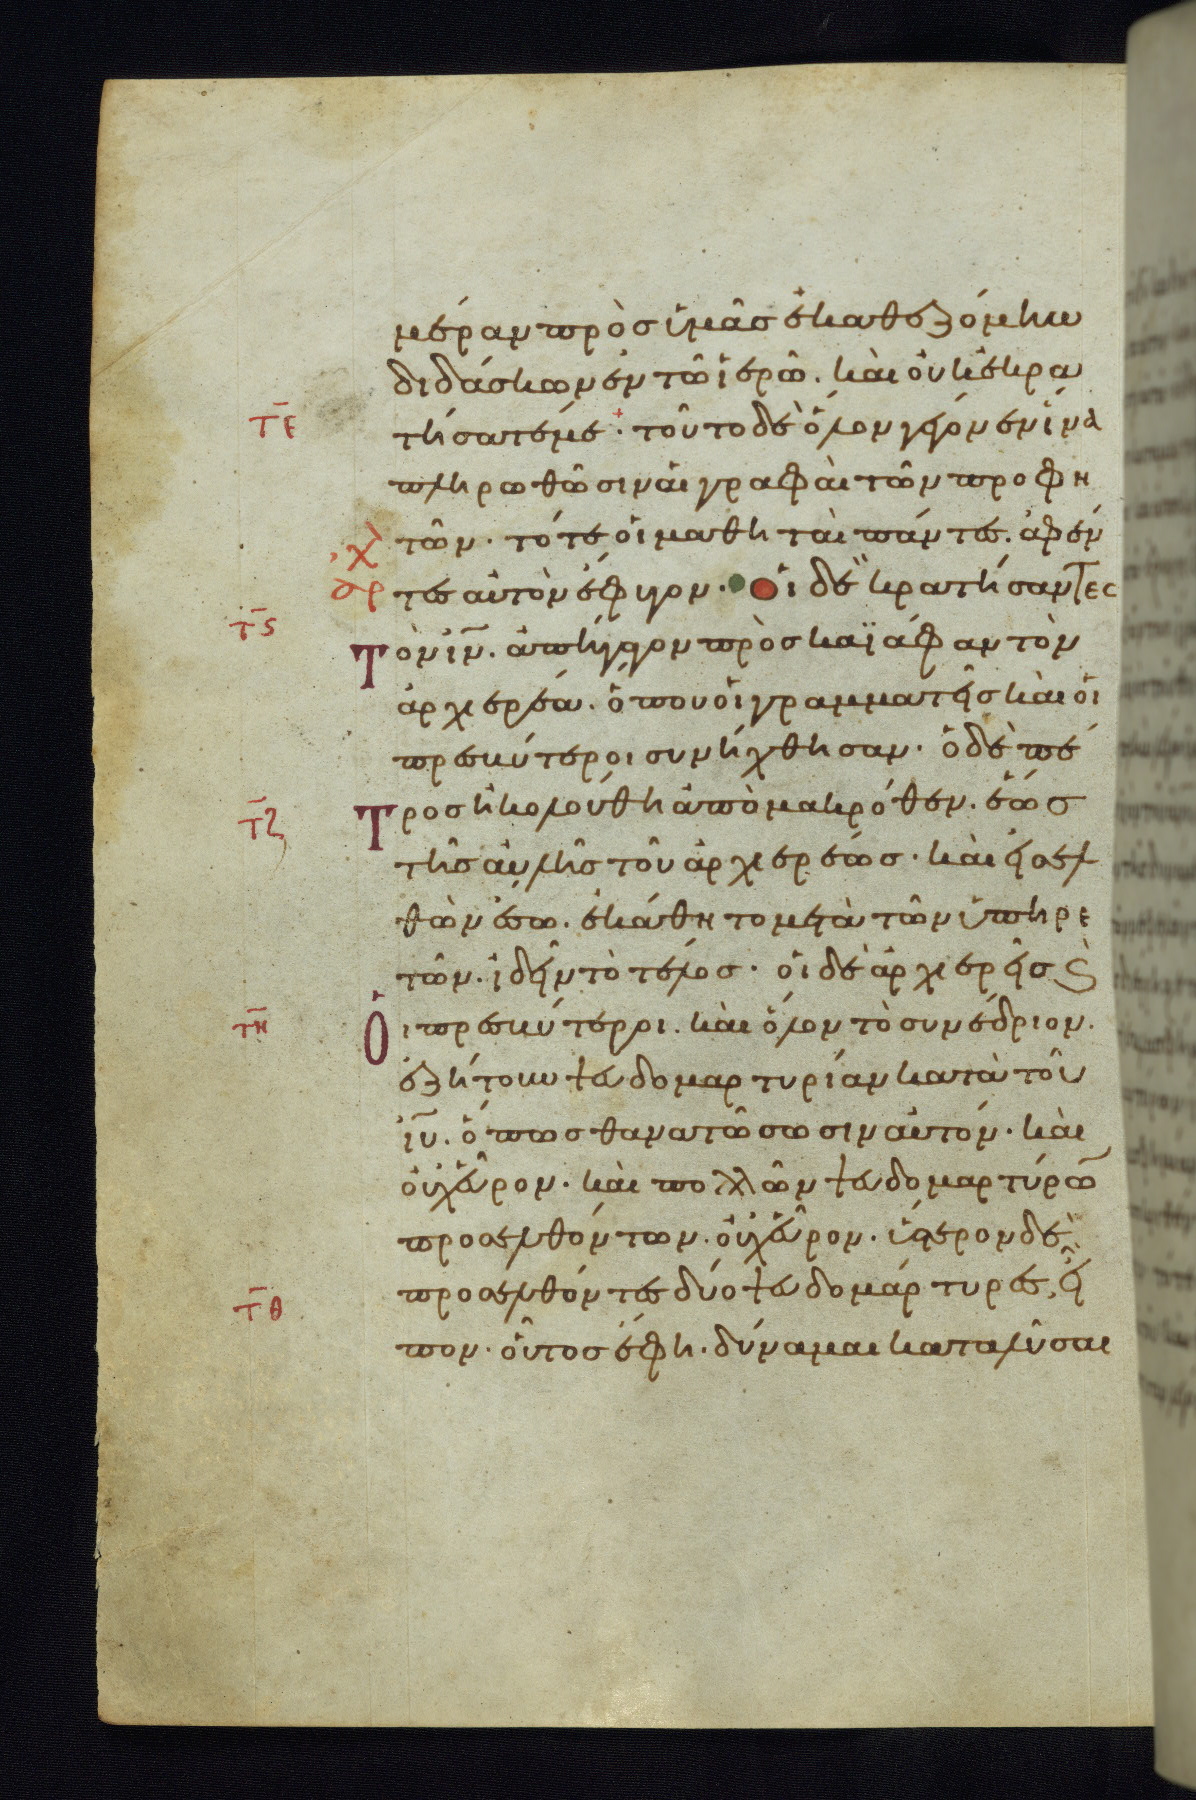 μέραν πρὸς ὑμᾶς ἐκαθεζόμην
διδάσκων ἐν τῶ ἱερῶ. καὶ οὐκ ἐκρα
τε τήσατέ με· τοῦτο δὲ ὅλον γέγονεν ἵνα
πληρωθῶσιν αἱ γραφαὶ τῶν προφη
τῶν· τότε οἱ μαθηταὶ πάντες. ἀφέν
αρχ τες αὐτὸν ἔφυγον· Οἱ δὲ κρατήσαντες
τς Τὸν ιν. ἀπήγαγον πρὸς καϊάφαν τὸν
ἀρχιερέα. ὅπου οἱ γραμματεῖς καὶ οἱ
πρεσβύτεροι συνήχθησαν· ὁ δὲ πέ
τζ Τρος ἠκολούθη ἀπὸ μακρόθεν. ἕως
τῆς αὐλῆς τοῦ ἀρχιερέως· καὶ εἰσελ
θὼν ἔσω. ἐκάθητο μετὰ τῶν ὑπηρε
τῶν. ἰδεῖν τὸ τέλος· οἱ δὲ ἀρχιερεῖς ϗ
τη Οἱ πρεσβύτεροι. καὶ ὅλον τὸ συνέδριον.
ἐζήτουν ψευδομαρτυρίαν κατὰ τοῦ
ιυ. ὅπως θανατώσωσιν αὐτόν· καὶ
οὐχ εὗρον· καὶ πολλῶν ψευδομαρτύρω
προσελθόντων. οὐχ εὗρον· ὕστερον δὲ
τθ προσελθόντες δύο ψευδομάρτυρες, εἶ
πον· οὗτος ἔφη· δύναμαι καταλῦσαι